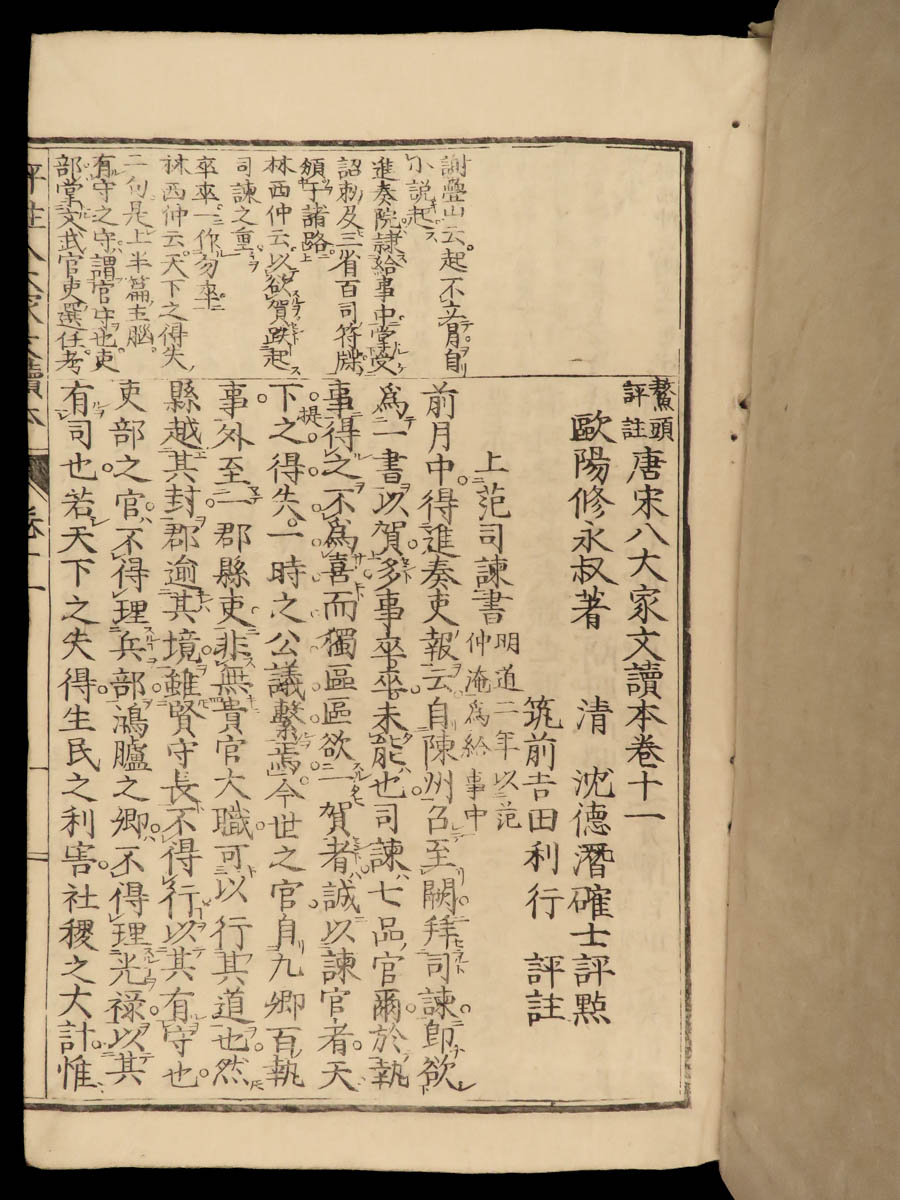 鰲頭
評註
唐宋八大家文讀本卷十一
歐陽修永叔著
清 沈德潛確士評點
筑前吉田利行 評註
上范司諫書
明道二年以范
仲淹為給事中
前月中得進奏吏報云自陳州召至闕拜司諫即欲
為一書以賀多事卒卒未能也司諫七品官爾於執
事得之不為喜而獨區區欲一賀者誠以諫官者天
下之得失一時之公議繫焉今世之官自九卿百執
事外至一郡縣吏非無貴官大職可以行其道也然
縣越其封郡逾其境雖賢守長不得行以其有守也
吏部之官不得理兵部鴻臚之卿不得理光祿以其
有司也若天下之失得生民之利害社稷之大計惟
謝疊山云起不立冒自
小說起
進奏院隸給事中掌受
詔勅及三省百司符牒
頒于諸路
林西仲云以欲賀跌起
司諫之重
卒卒一作匆卒
林西仲云天下之得失
二句是上半篇主腦
有守之守謂官守也吏
部掌文武官吏選任考
提
評註八大家文讀本
卷十一
一